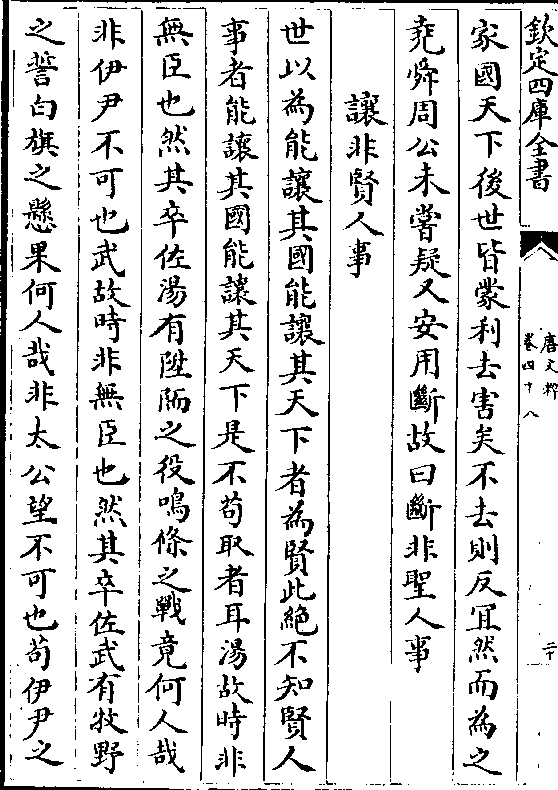 欽定四庫全書
唐文粹
卷四十八
二十
家國天下後世皆蒙利去害矣不去則反冝然而為之
堯舜周公未嘗疑又安用斷故曰斷非聖人事
讓非賢人事
世以為能讓其國能讓其天下者為賢此絶不知賢人
事者能讓其國能讓其天下是不苟取者耳湯故時非
無臣也然其卒佐湯有陞陑之役鳴條之戰竟何人哉
非伊尹不可也武故時非無臣也然其卒佐武有牧野
之誓白旗之懸果何人哉非太公望不可也苟伊尹之